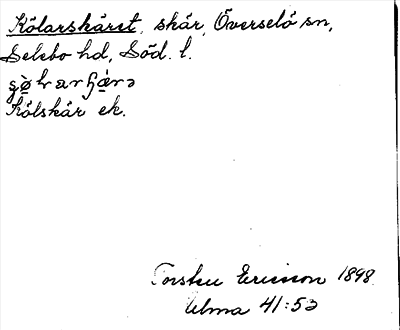 Kölarskäret, skär, Överselö sn,
Selebo hd, Söd. l.
Kölskär ek.
Torsten Ericsson 1898
Ulma 41:53